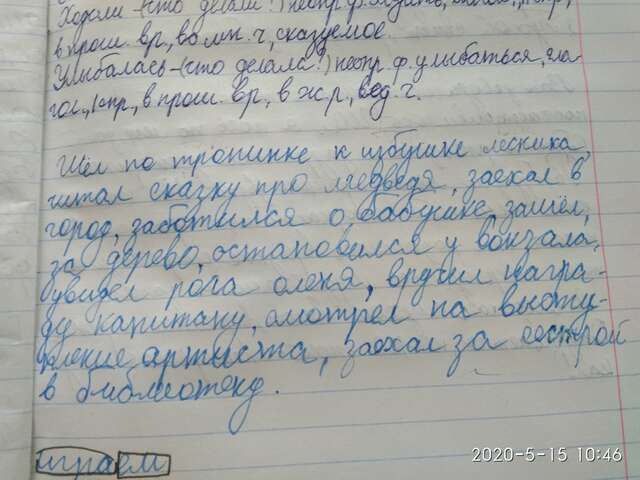 Ходили - (что делали?) неопр. ф. ходить, глагол, I спр.,
в прош. вр., во мн. ч, сказуемое
Улыбалась - (что делала?) неопр. ф. улыбаться, гла-
гол., I спр., в прош. вр., в ж.р., в ед. ч.
Шёл по тропинке к избушке лесника,
читал сказку про медведя, заехал в
город, заботился о бабушке, зашёл,
за дерево, остановился у вокзала,
увидел рога оленя, вручил награ-
ду капитану, смотрел на высту-
пление артиста, заехал за сестрой
в библиотеку.
играем
2020-5-15 10:46